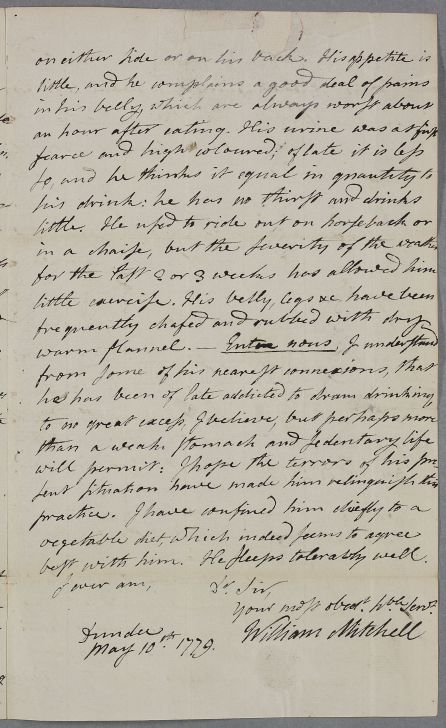 on either side or on his back. His appetite is
little, and he complains a good deal of pains
in his belly, which are always worst about
an hour after eating. His urine was at first
scarce and high coloured; of late it is less
so, and he thinks it equal in quantity to
his drink: he has no thirst and drinks
little. He used to ride out on horseback or
in a chaise, but the severity of the weather
for the last 2 or 3 weeks has allowed him
little exercise. His belly, legs &c have been
frequently chafed and rubbed with dry
warm flannel. — Entre nous, I understand
from some of his nearest connexions, that
he has been of late addicted to dram drinking
to no great excess, I believe, but perhaps more
than a weak stomach and sedentary life
will permit: I hope the terrors of his pre
sent situation have made him relinquish this
practice. I have confined him chiefly to a
vegetable diet, which indeed seems to agree
best with him. He sleeps tolerably well.
I ever am, Dr. Sir,
Your most obedt. hble Servt.
William Mitchell
Dundee
May 10th. 1779.